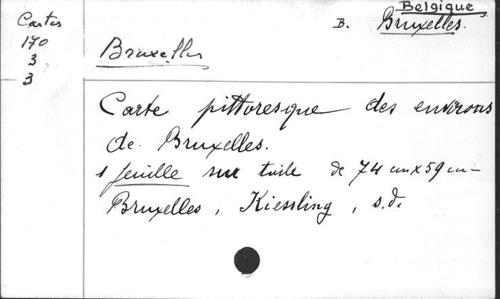 Cartes
170
3
3
Belgique
B. Bruxelles.
Bruxelles
Carte pittoresque des environs
de Bruxelles.
1 feuille sur toile de 74 cm x 59 cm
Bruxelles, Kiessling, s.d.